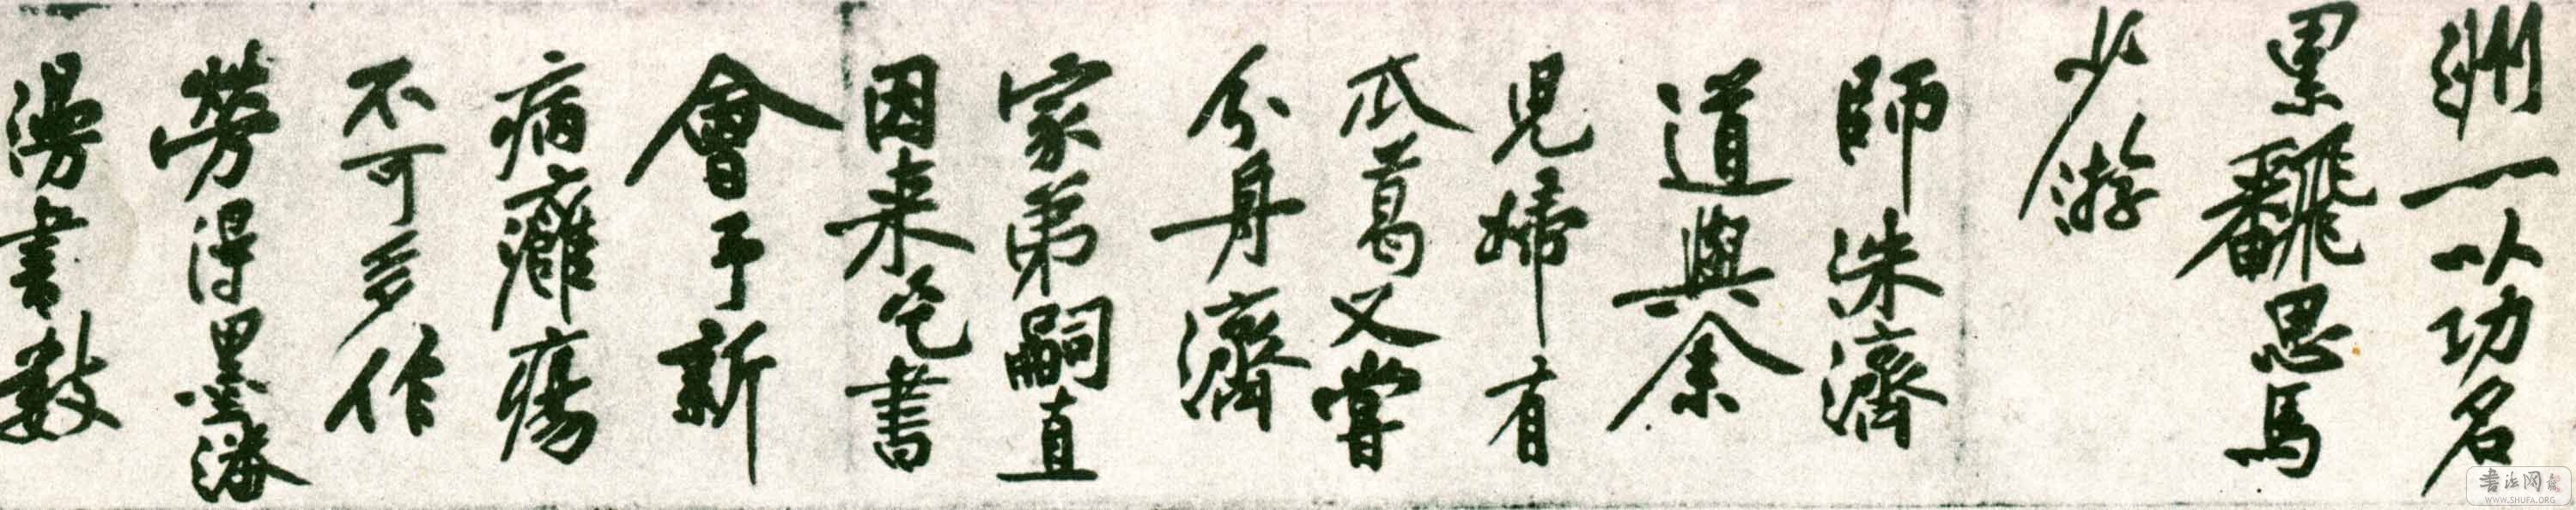 洲一以功名
累翻思馬
少游
師洙濟
道與余
児婦有
瓜葛又嘗
分舟濟
家弟嗣直
因来乞書
會予新
病癰瘍
不可多作
勞得墨瀋
漫書數
书法网
WWW.SHUFA.ORG